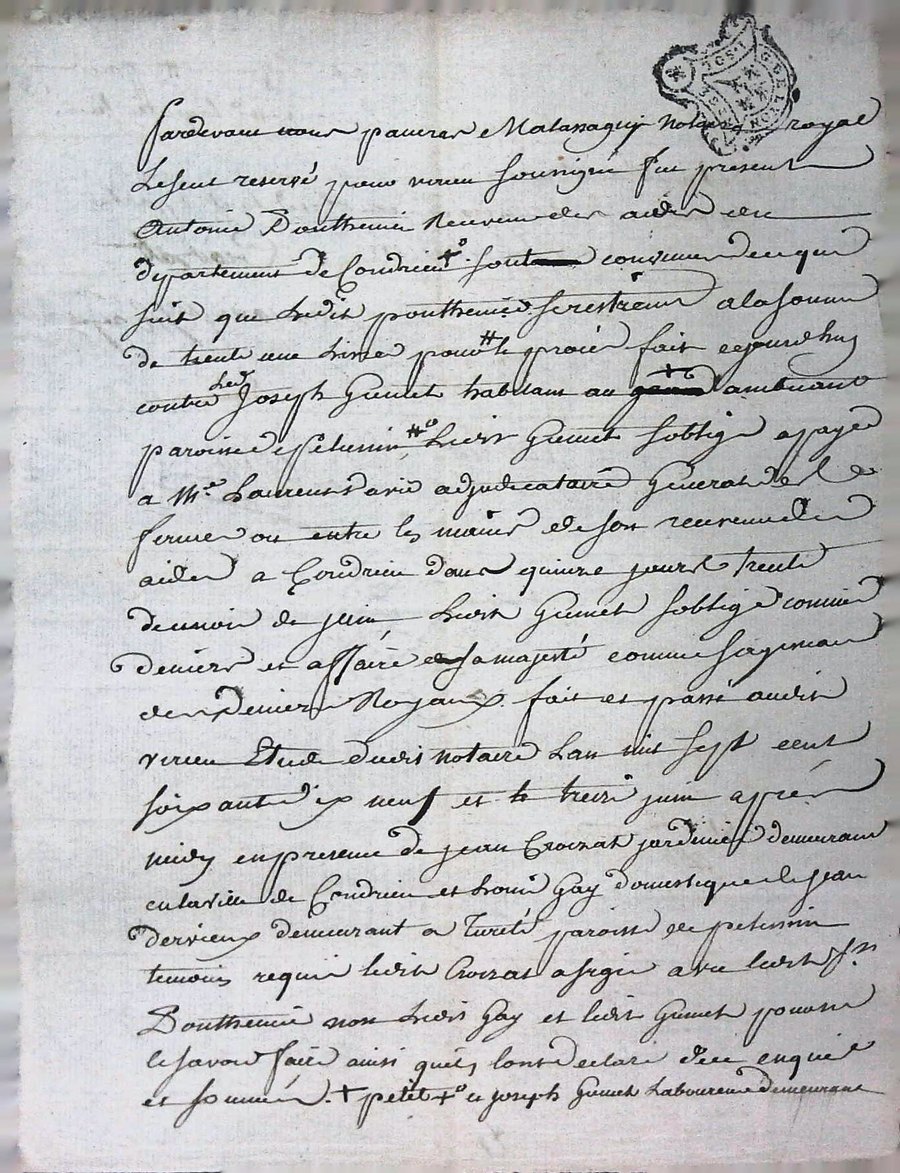 GEN DE LYON
Pardevant nous pancras Matassaguy Notaire royal
Le seul reservé pour virieu soussigné fut present
Antoine Donthenier Receveur des aides du
departement de Condrieu +° sont convenus de ce que
suit que Ledit ponthenier se restraint a la somme
de trente une Livre pour # le procès fait cejourdhuy
contre Led Joseph Grenet habitant au +°
paroisse de Pelussin #° Ledit Grenet soblige a payer
a Mre Laurent david adjudicataire General des
fermes ou entre les mains de son receveur des
aides a Condrieu dans quinze jours
du mois de juin Ledit Grenet soblige comme
deniers et affaire de sa majesté comme sagissant
de Deniers Royaux fait et passé audit
virieu Etude dudit notaire Lan mil sept cent
soixante dix neuf et le treize juin après
midy en presence de jean Croizat jardinier demeurant
en la ville de Condrieu et Louis Gay domestique de jean
dervieux demeurant a Tureté paroisse de pelussin
temoins requis ledit Croizat a signé avec ledit sr
Donthenier non Ledit Gay et ledit Grenet pour ne
le savoir faire ainsi quils lont declaré de ce enquis
et sommés. + petit +° et joseph Grenet Laboureur demeurant